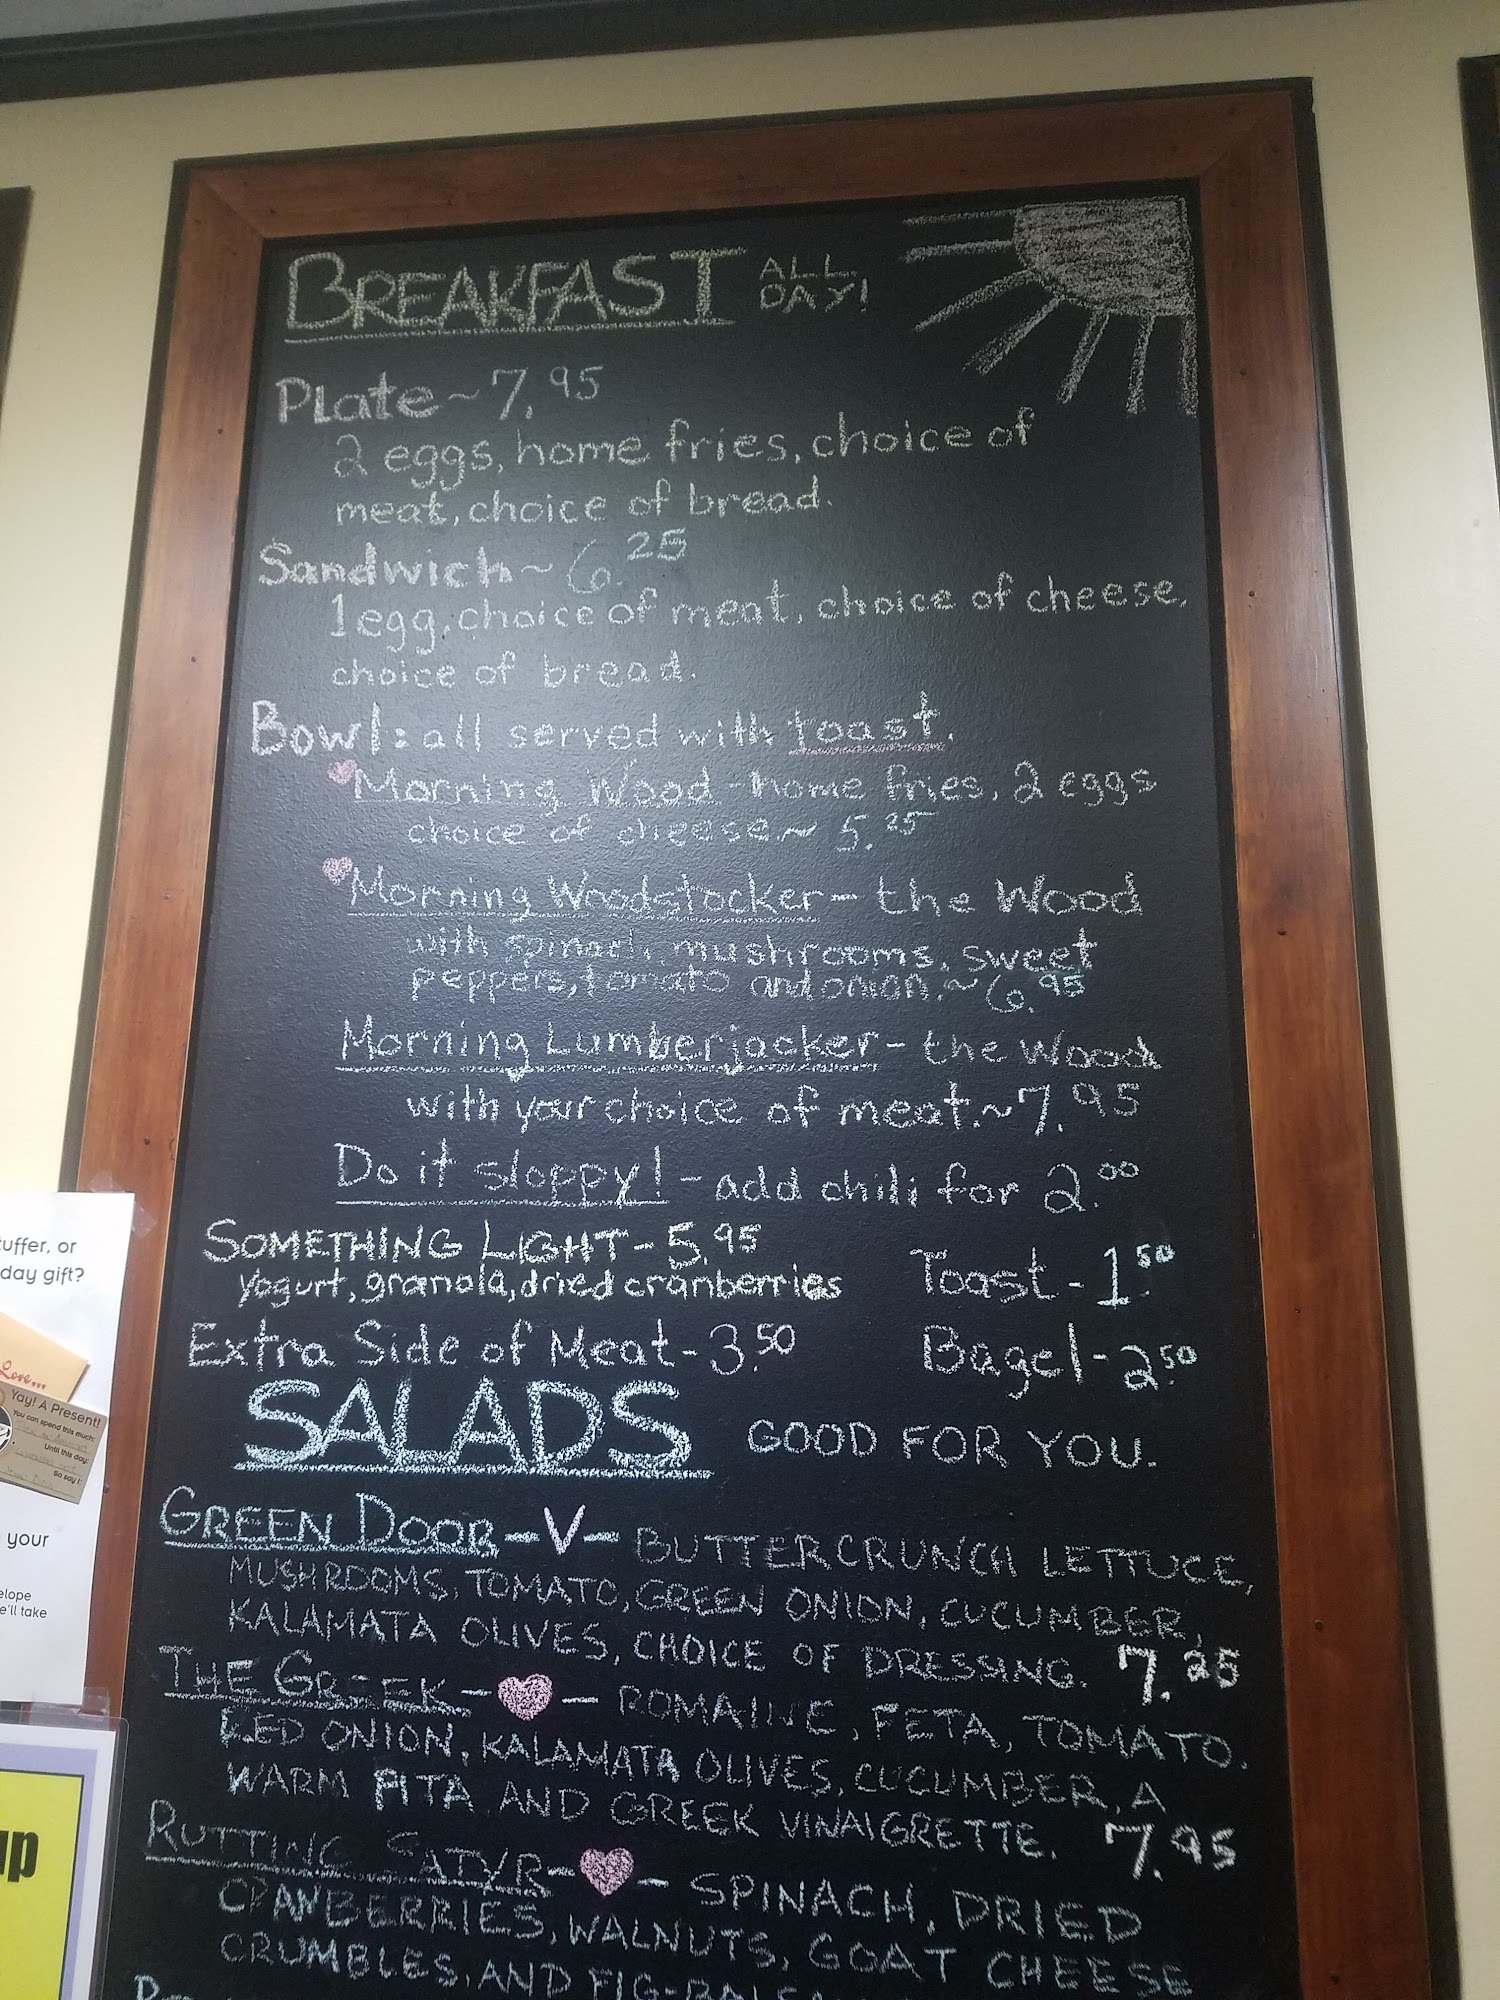 BREAKFAST ALL DAY!
PLate ~ 7.95
2 eggs, home fries, choice of
meat, choice of bread.
Sandwich ~ 6.25
1 egg, choice of meat, choice of cheese,
choice of bread.
Bowl: all served with toast.
Morning Wood - home fries, 2 eggs
choice of cheese ~ 5.25
Morning Woodstocker - the Wood
with spinach, mushrooms, sweet
peppers, tomato and onion. ~ 6.95
Morning Lumberjacker - the Wood
with your choice of meat. ~ 7.95
Do it sloppy! - add chili for 2.00
SOMETHING LIGHT - 5.95
Yogurt, granola, dried cranberries
Toast - 1.50
Extra Side of Meat - 3.50
Bagel - 2.50
SALADS GOOD FOR YOU.
GREEN DOOR - V - BUTTERCRUNCH LETTUCE,
MUSHROOMS, TOMATO, GREEN ONION, CUCUMBER,
KALAMATA OLIVES, CHOICE OF DRESSING. 7.25
THE GREEK - ROMAINE, FETA, TOMATO,
RED ONION, KALAMATA OLIVES, CUCUMBER, A
WARM PITA AND GREEK VINAIGRETTE. 7.95
RUTTING SATYR - SPINACH, DRIED
CRANBERRIES, WALNUTS, GOAT CHEESE
CRUMBLES, AND
uffer, or
day gift?
Love...
Yay! A Present!
You can spend this much:
Until this day:
So say I:
your
elope
e'll take
up